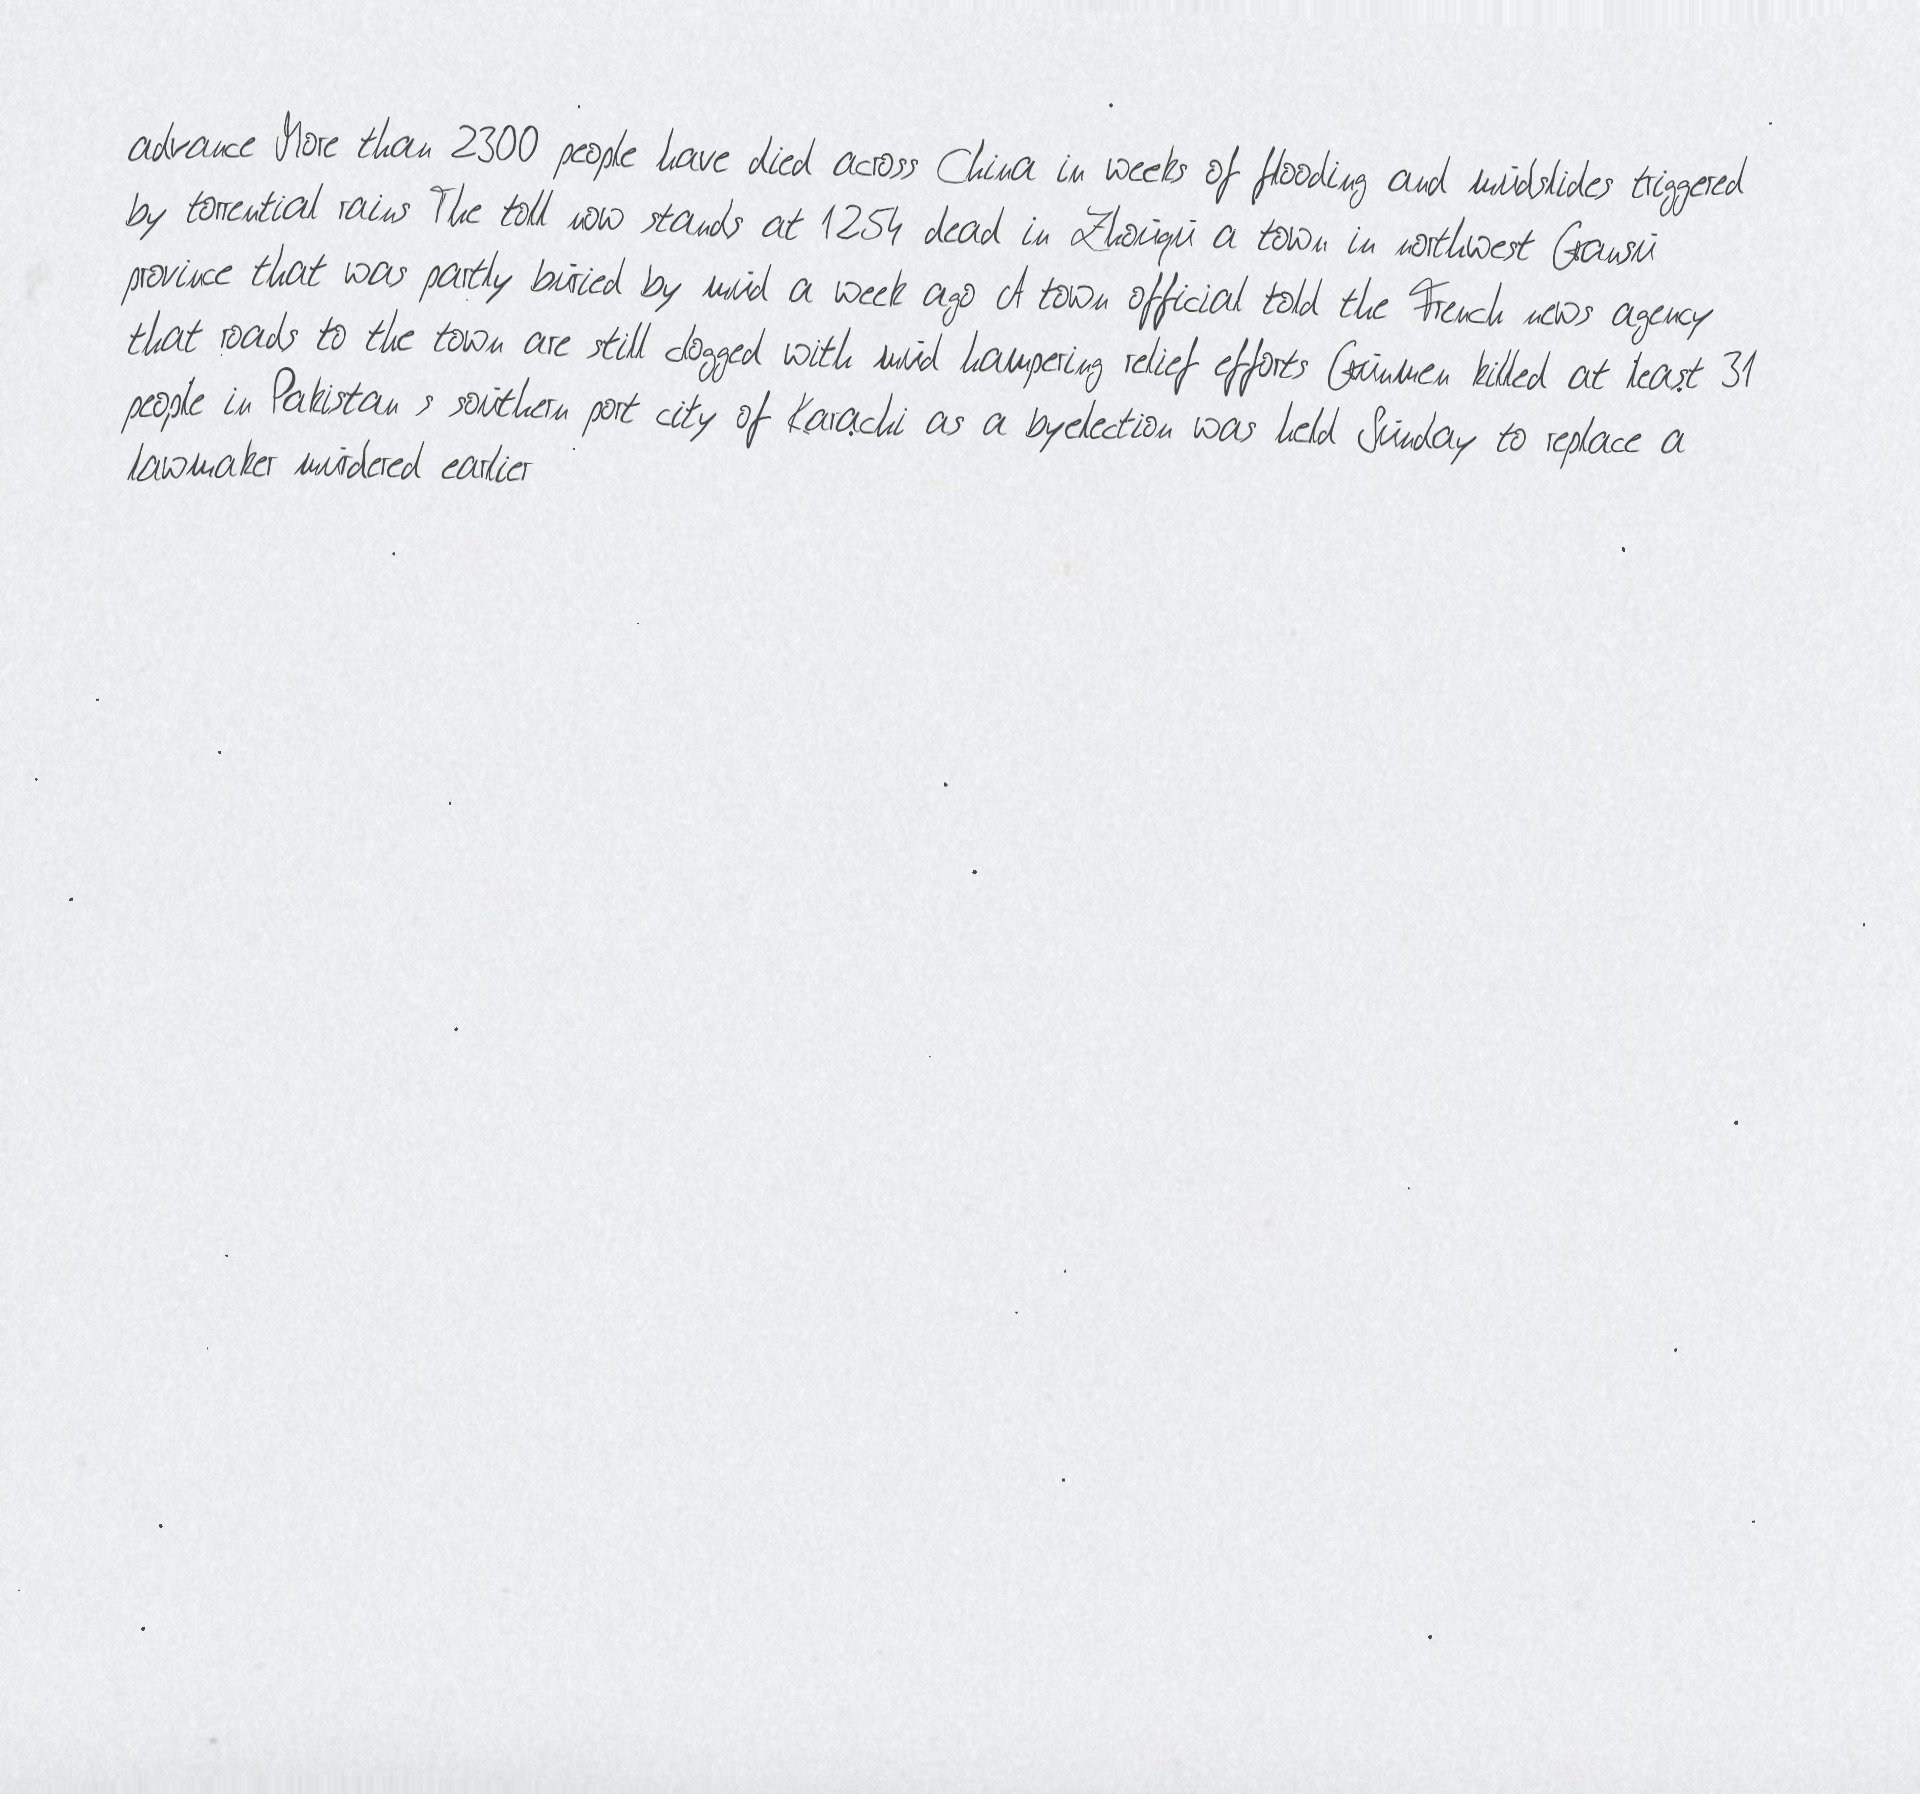 advance More than 2300 people have died across China in weeks of flooding and mudslides triggered
by torrential rains The toll now stands at 1254 dead in Zhouqu a town in northwest Gansu
province that was partly buried by mud a week ago A town official told the French news agency
that roads to the town are still clogged with mud hampering relief efforts Gunmen killed at least 31
people in Pakistan s southern port city of Karachi as a byelection was held Sunday to replace a
lawmaker murdered earlier